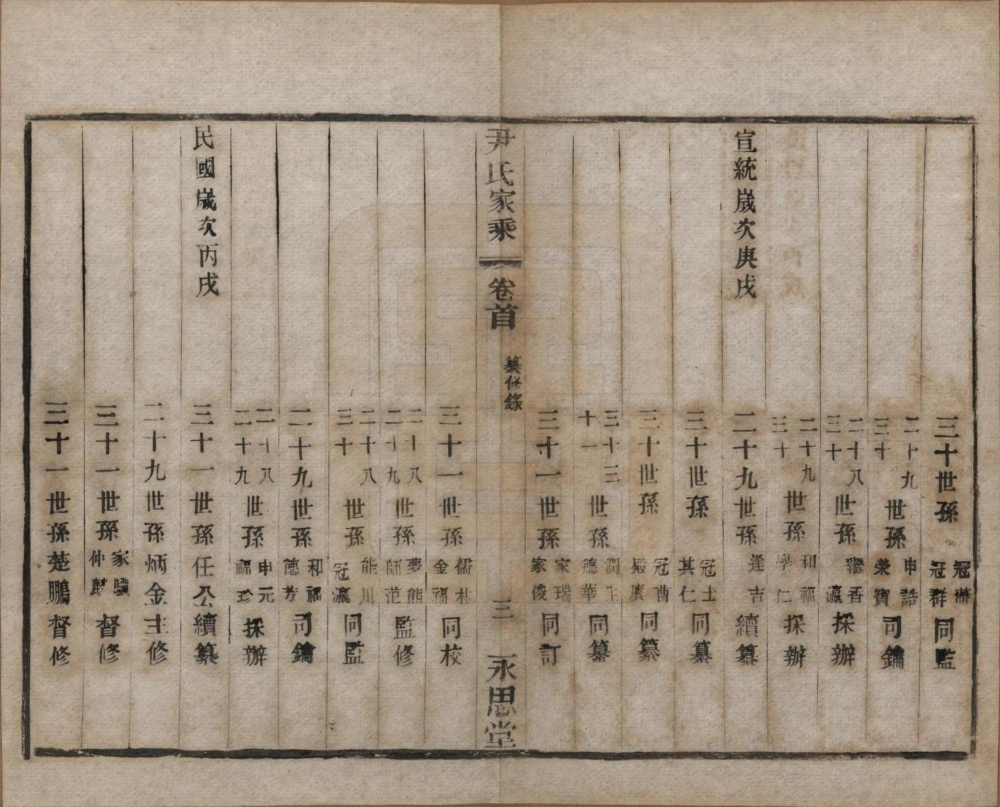 三十世孫 冠群 同監
二十九 三十 世孫 申誥 榮寶 司鑰
二十八 三十 世孫 香 瀛 採辦
二十九 三十 世孫 和福 仁 採辦
宣統歲次庚戌 二十九世孫 逢吉 續纂
三十世孫 冠士 其仁 同纂
三十世孫 冠曹 殿賡 同纂
三十三 十一 世孫 潤玉 德華 同纂
三十一世孫 家瑞 家俊 同訂
尹氏家乘 卷首 纂修錄 三 永思堂
三十一世孫 儒朴 金福 同校
二十八 二十九 世孫 夢熊 師范 監修
二十八 三十 世孫 熊川 冠瀛 同監
二十九世孫 和福 德芳 司鑰
二十八 二十九 世孫 申元 福珍 採辦
民國歲次丙戌 三十一世孫任公續纂
二十九世孫炳金主修
三十一世孫 家驥 仲麟 督修
三十一世孫楚鵬督修